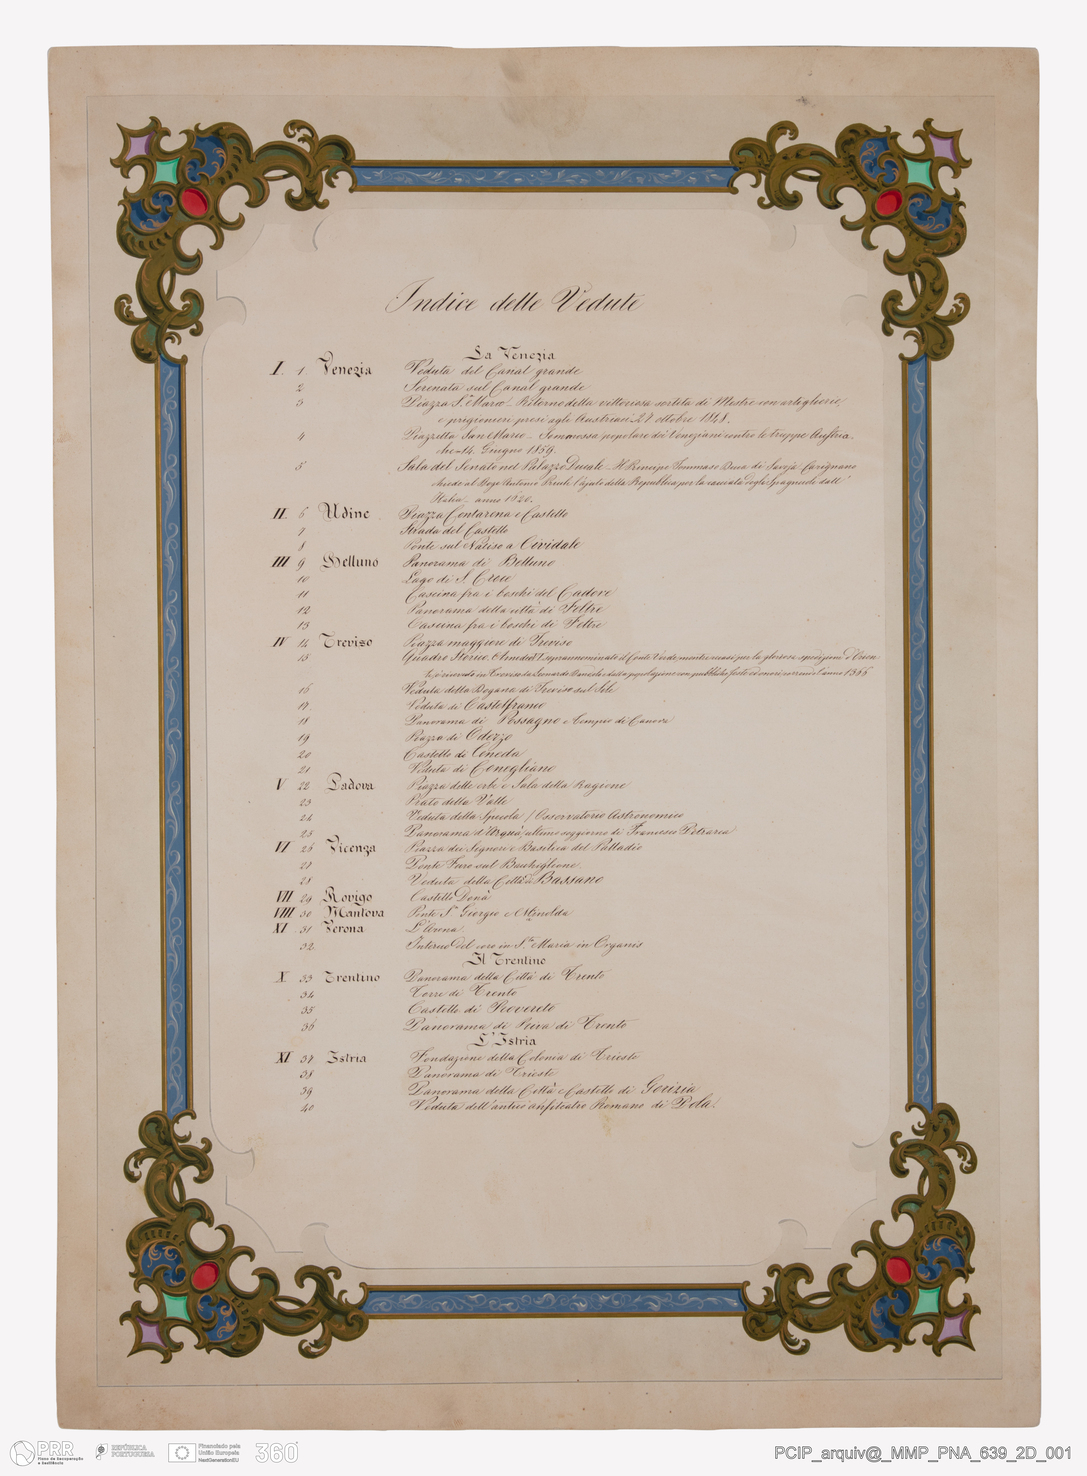 Indice delle Vedute
La Venezia
I. 1 Venezia Veduta del Canal grande
2 Serenata sul Canal grande
3 Piazza S. Marco - Ritorno della vittoriosa sortita di Mestre con artiglierie
e prigionieri presi agli Austriaci 27 ottobre 1848.
4 Piazzetta San Marco - Sommossa popolare dei Veneziani contro le truppe Austria-
che 14 Giugno 1859.
5 Sala del Senato nel Palazzo Ducale - Il Principe Tommaso Duca di Savoja Carignano
chiede al Doge Antonio Priuli l'ajuto della Republica per la cacciata degli Spagnuoli dall'
Italia - anno 1620.
II. 6 Udine Piazza Contarena e Castello
7 Strada del Castello
8 Ponte sul Natiso a Cividale
III 9 Belluno Panorama di Belluno
10 Lago di S. Croce
11 Cascina fra i boschi del Cadore
12 Panorama della città di Feltre
13 Cascina fra i boschi di Feltre
IV 14 Treviso Piazza maggiore di Treviso
15 Quadro Storico. Amedeo soprannominato il Conte Verde, per la gloriosa spedizione d'Orien
te, è ricevuto in Treviso da dalla popolazione con pubbliche feste ed onori l'anno 1366
16 Veduta della Dogana di Treviso sul Sile
17 Veduta di Castelfranco
18 Panorama di Possagno e Tempio di Canova
19 Piazza di Oderzo
20 Castello di Ceneda
21 Veduta di Conegliano
V 22 Padova Piazza delle erbe e Sala della Ragione
23 Prato della Valle
24 Veduta della Specola / Osservatorio Astronomico
25 Panorama d'Arquà, ultimo soggiorno di Francesco Petrarca
VI 26 Vicenza Piazza dei Signori e Basilica del Palladio
27 Ponte Furo sul Bacchiglione
28 Veduta della Città di Bassano
VII 29 Rovigo Castello Donà
VIII 30 Mantova Ponte S. Giorgio e
XI 31 Verona L'Arena
32 Interno del coro in S.ta Maria in Organis
Il Trentino
X 33 Trentino Panorama della Città di Trento
34 Torre di Trento
35 Castello di Rovereto
36 Panorama di Riva di Trento
L'Istria
XI 37 Istria Fondazione della Colonia di Trieste
38 Panorama di Trieste
39 Panorama della Città e Castello di Gorizia
40 Veduta dell'antico anfiteatro Romano di Pola.
PRR
Plano de Recuperação
e Resiliência
REPÚBLICA
PORTUGUESA
Financiado pela
União Europeia
NextGenerationEU
360°
PCIP_arquiv@_MMP_PNA_639_2D_001